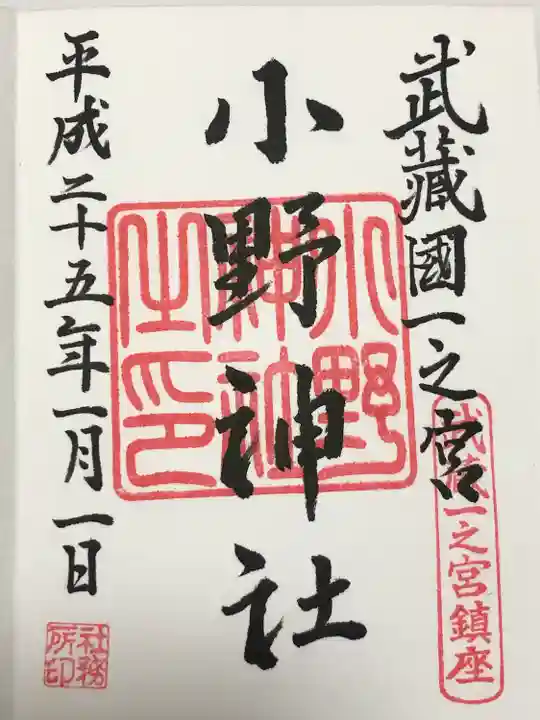 武藏國一之宮
武蔵一之宮鎮座
小野神社
小野神社之印
平成二十五年一月一日
社務所印